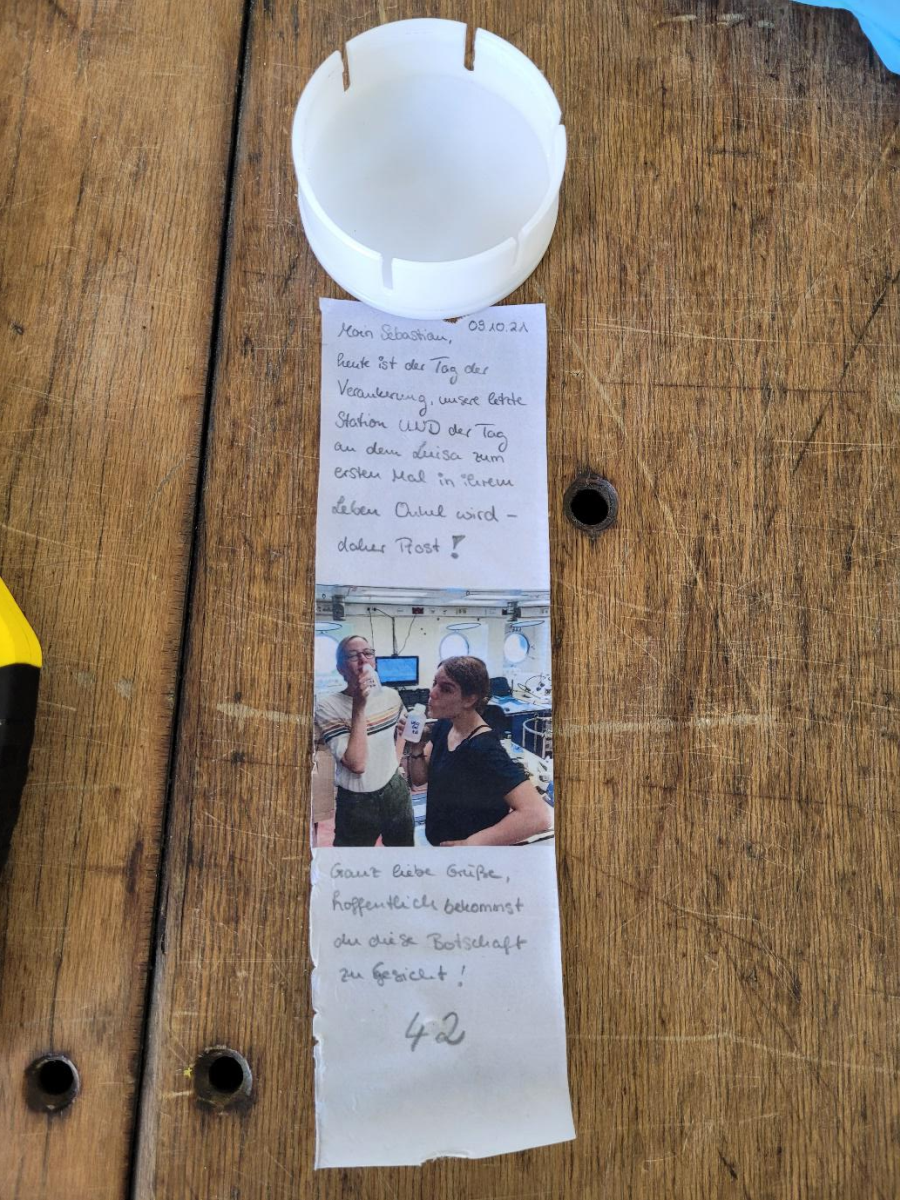 Moin Sebastian, 09.10.21
heute ist der Tag der
Verankerung, unsere letzte
Station UND der Tag
an dem Luisa zum
ersten Mal in ihrem
Leben Onkel wird –
daher Prost!
Ganz liebe Grüße,
hoffentlich bekommst
du diese Botschaft
zu Gesicht!
42